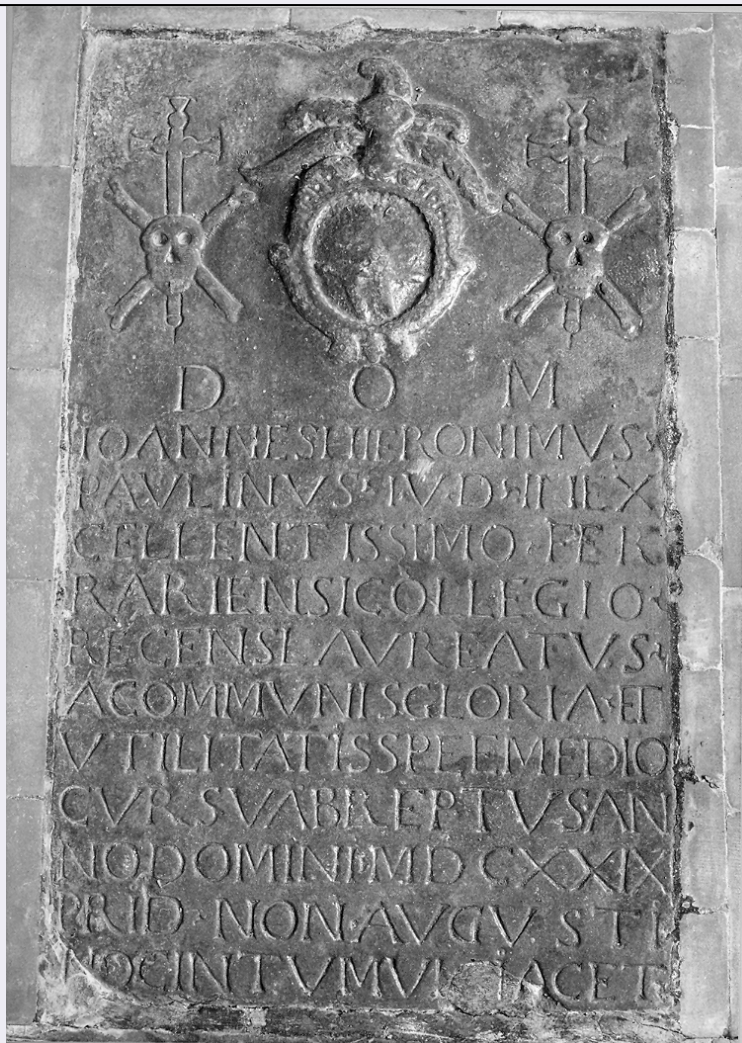 D O M
IOANNES HIERONIMVS
PAVLINVS · I · V · D · IN EX
CELLENTISSIMO · FER
RARIENSI COLLEGIO ·
RECENS LAVREATVS ·
A COMMVNIS GLORIA · ET
VTILITATIS SPE E MEDIO
CVRSV ABREPTVS AN
NO DOMINI MDCXXIX
PRID · NON · AVGVSTI
IACET